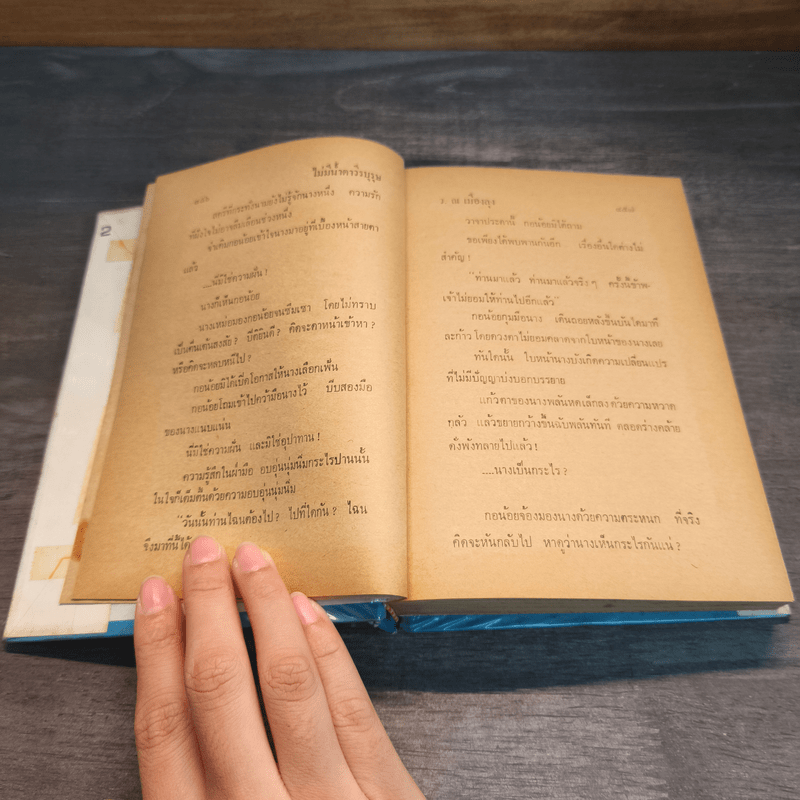 2
ไม่มีน้ำตาวีรบุรุษ
สตรีซึ่งจะ
ที่ฝังใจไม่อาจลืมเลือนช่วงหนึ่ง
จำเดิมกอน้อยเข้าใจนางมาอยู่ที่เบื้องหน้าสายตา
แล้ว
....นี่มิใช่ความฝัน!
นางก็เห็นกอน้อย
นางเหม่อมองกอน้อยจนซึมเซา โดยไม่ทราบ
เป็นตื่นเต้นสงสัย? ปีติยินดี? คิดจะคาหน้าเข้าหา?
หรือคิดจะหลบหนีไป?
กอน้อยมิได้เปิดโอกาสให้นางเลือกเฟ้น
กอน้อยโถมเข้าไปคว้ามือนางไว้ บีบสองมือ
ของนางแนบแน่น
นี่มิใช่ความฝัน และมิใช่อุปาทาน!
ความรู้สึกในฝ่ามือ อบอุ่นนุ่มนิ่มกระไรปานนั้น
ในใจก็เต็มตื้นด้วยความอบอุ่นนุ่มนิ่ม
"วันนั้นท่านไฉนต้องไป? ไปที่ใดกัน? ไฉน
จึงมาที่นี้ได้
ว. ณ เมืองลุง
๘๕๗
วาจาประดานี้ กอน้อยมิได้ถาม
ขอเพียงได้พบพานกันอีก เรื่องอื่นใดต่างไม่
สำคัญ!
"ท่านมาแล้ว ท่านมาแล้วจริงๆ ครั้งนี้ข้าพ-
เจ้าไม่ยอมให้ท่านไปอีกแล้ว"
กอน้อยกุมมือนาง เดินถอยหลังขึ้นบันไดมาที
ละก้าว โดยดวงตาไม่ยอมคลาดจากใบหน้าของนางเลย
ทันใดนั้น ใบหน้านางบังเกิดความเปลี่ยนแปร
ที่ไม่มีปัญญาบ่งบอกบรรยาย
แก้วตาของนางพลันหดเล็กลงด้วยความหวาด
กลัว แล้วขยายกว้างขึ้นฉับพลันทันที ตลอดร่างคล้าย
ดั่งพังทลายไปแล้ว!
....นางเป็นกระไร?
กอน้อยจ้องมองนางด้วยความตระหนก ที่จริง
คิดจะหันกลับไป หาดูว่านางเห็นกระไรกันแน่?